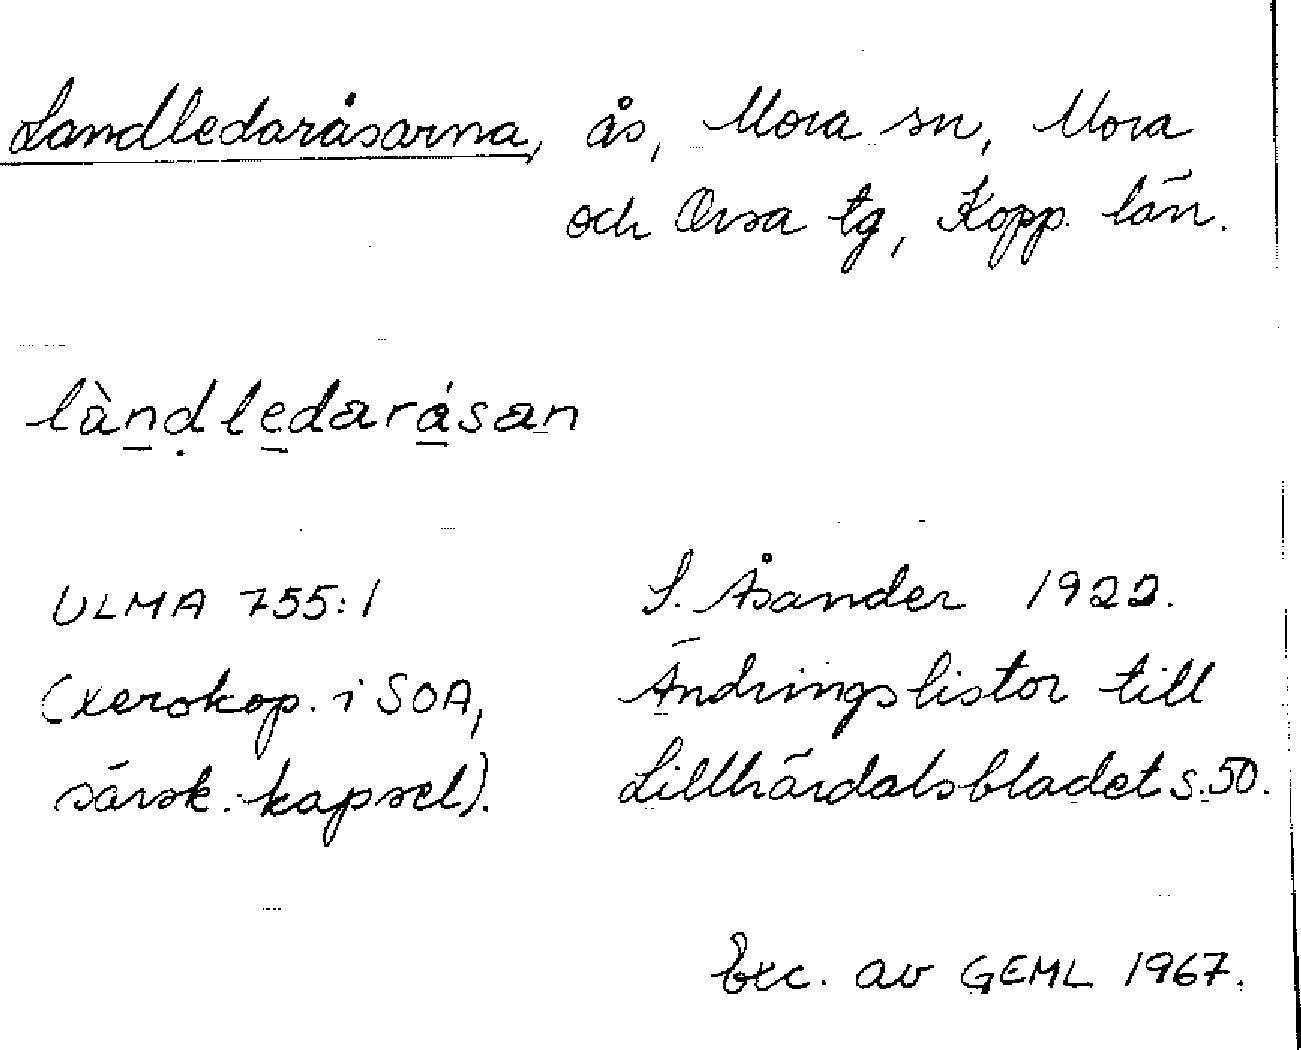 Landledaråsarna, ås, Mora sn, Mora
och Orsa tg, Kopp. län.
làn̲ḍle̲dará̲san̲
ULMA 755:1
(xerokop. i SOA,
särsk. kapsel).
S. Åsander 1922.
Ändringslistor till
Lillhärdalsbladet s. 50.
Exc. av GEML 1967.